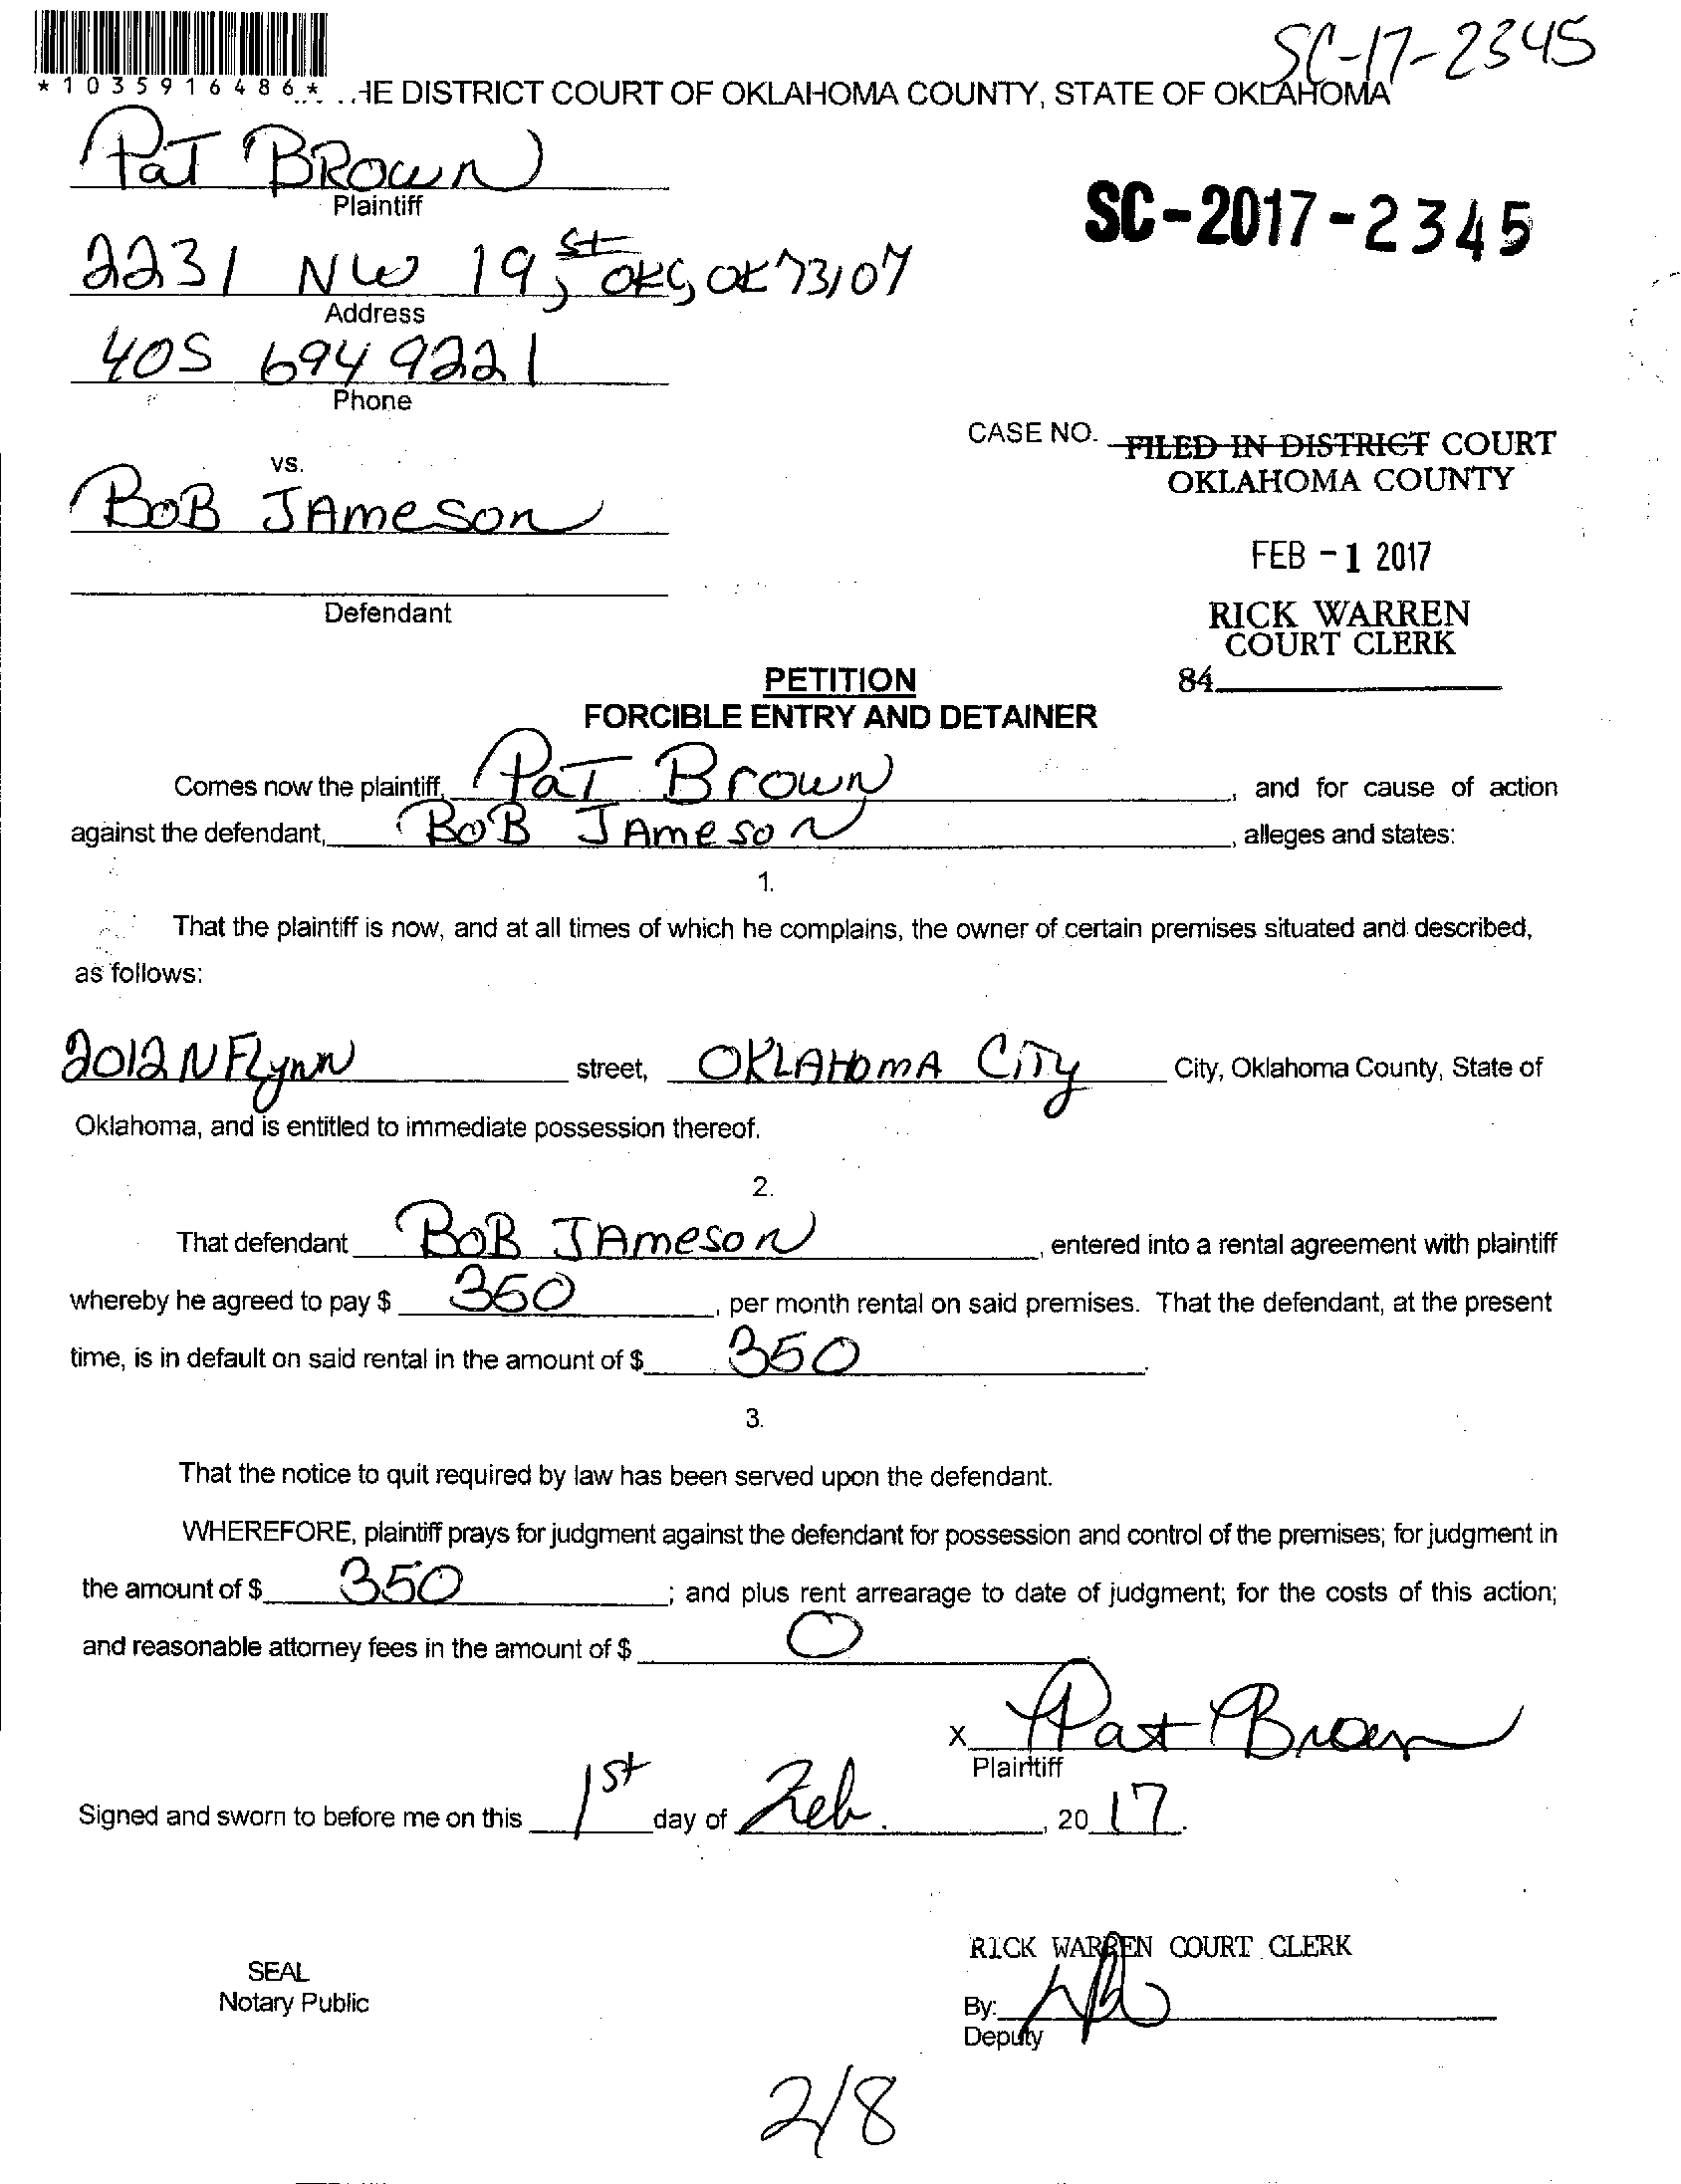 SC-17-2345
*1035916486* HE DISTRICT COURT OF OKLAHOMA COUNTY, STATE OF OKLAHOMA
PaT BROWN
Plaintiff
SC-2017-2345
2231 NW 19, St OKC, OK 73107
Address
405 694 9221
Phone
CASE NO. FILED IN DISTRICT COURT
OKLAHOMA COUNTY
vs.
BoB JAmeson
FEB - 1 2017
Defendant
RICK WARREN
COURT CLERK
84
PETITION
FORCIBLE ENTRY AND DETAINER
Comes now the plaintiff, PaT Brown, and for cause of action
against the defendant, BoB JAmeson, alleges and states:
1.
That the plaintiff is now, and at all times of which he complains, the owner of certain premises situated and described,
as follows:
2012 N FLynn street, OKLAHOMA CiTy City, Oklahoma County, State of
Oklahoma, and is entitled to immediate possession thereof.
2.
That defendant BoB JAmeson, entered into a rental agreement with plaintiff
whereby he agreed to pay $ 350, per month rental on said premises. That the defendant, at the present
time, is in default on said rental in the amount of $ 350.
3.
That the notice to quit required by law has been served upon the defendant.
WHEREFORE, plaintiff prays for judgment against the defendant for possession and control of the premises; for judgment in
the amount of $ 350; and plus rent arrearage to date of judgment; for the costs of this action;
and reasonable attorney fees in the amount of $ 0
X Pat Brown
Plaintiff
Signed and sworn to before me on this 1st day of Feb., 20 17.
RICK WARREN COURT CLERK
SEAL
Notary Public
By:
Deputy
2/8